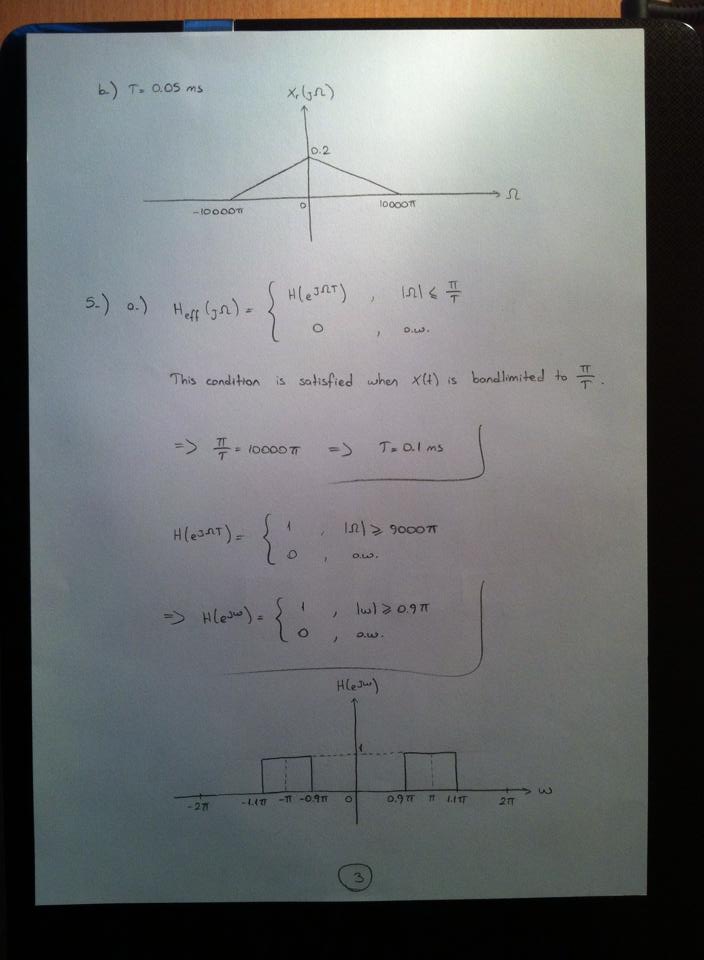 b.) T = 0.05 ms
Xr(jΩ)
0.2
-10000π 0 10000π Ω
5-) a.) Heff(jΩ) = { H(e^jΩT) , |Ω| ≤ π/T
0 , o.w.
This condition is satisfied when X(t) is bandlimited to π/T.
=> π/T = 10000π => T = 0.1 ms
H(e^jΩT) = { 1 , |Ω| ≥ 9000π
0 , o.w.
=> H(e^jω) = { 1 , |ω| ≥ 0.9π
0 , o.w.
H(e^jω)
1
-2π -1.1π -π -0.9π 0 0.9π π 1.1π 2π ω
3